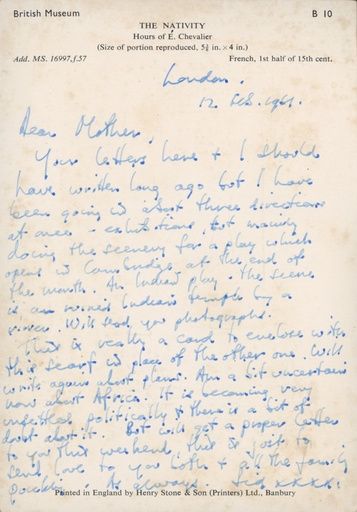 British Museum
B 10
THE NATIVITY
Hours of E. Chevalier
(Size of portion reproduced, 5¾ in. × 4 in.)
Add. MS. 16997, f.57
French, 1st half of 15th cent.
London.
12 Feb. 1961.
Dear Mother,
Your letters here & I should
have written long ago but I have
been going in about three directions
at once - exhibitions, but mainly
doing the scenery for a play which
opens in Cambridge at the end of
the month. An Indian play. The scene
is an ruined Indian temple by a
river. Will send you photographs.
This is really a card to enclose with
this scarf in place of the other one. Will
write again about plans. Am a bit uncertain
now about Africa. It is becoming very
unsettled politically & there is a bit of
doubt about it. But will get a proper letter
to you this weekend, this is just to
send love to you both & all the family
As always. xxxxx
Printed in England by Henry Stone & Son (Printers) Ltd., Banbury